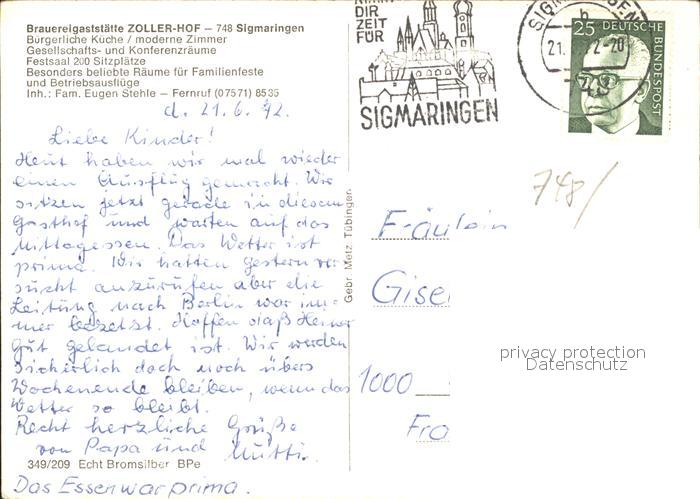 Brauereigaststätte ZOLLER-HOF – 748 Sigmaringen
Bürgerliche Küche / moderne Zimmer
Gesellschafts- und Konferenzräume
Festsaal 200 Sitzplätze
Besonders beliebte Räume für Familienfeste
und Betriebsausflüge
Inh.: Fam. Eugen Stehle – Fernruf (07571) 8535
d. 21.6.72.
Liebe Kinder!
Heut haben wir mal wieder
einen Ausflug gemacht. Wir
sitzen jetzt gerade in diesem
Gasthof und warten auf das
Mittagessen. Das Wetter ist
prima. Wir hatten gestern ver
sucht anzurufen aber die
Leitung nach Berlin war im-
mer besetzt. Hoffen daß Heiner
gut gelandet ist. Wir werden
sicherlich doch noch übers
Wochenende bleiben, wenn das
Wetter so bleibt.
Recht herzliche Grüße
von Papa und Mutti.
349/209 Echt Bromsilber BPe
Das Essen war prima.
Gebr. Metz, Tübingen
DIR
ZEIT
FÜR
SIGMARINGEN
SIGMARINGEN
b
21.
2-20
25
DEUTSCHE
BUNDESPOST
748/
Fräulein
Gisel
1000
Fra
privacy protection
Datenschutz